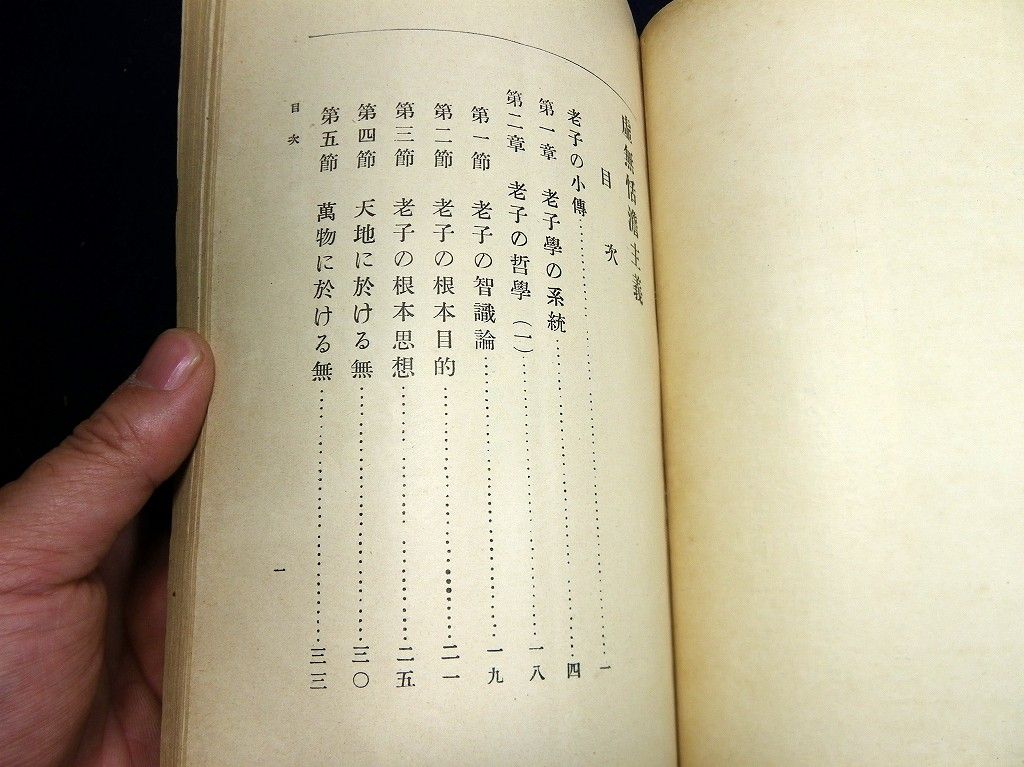 虛無恬澹主義
目次
老子の小傳……一
第一章 老子學の系統……四
第二章 老子の哲學(一)……一八
第一節 老子の智識論……一九
第二節 老子の根本目的……二一
第三節 老子の根本思想……二五
第四節 天地に於ける無……三〇
第五節 萬物に於ける無……三三
目次
一